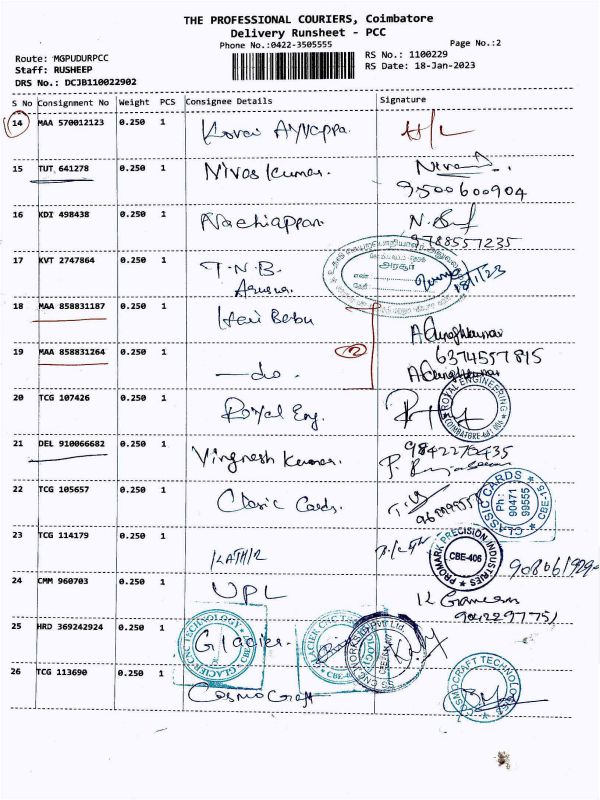 THE PROFESSIONAL COURIERS, Coimbatore
Delivery Runsheet - PCC
Phone No.:0422-3505555
Page No.:2
Route: MGPUDURPCC
RS No.: 1100229
Staff: RUSHEEP
RS Date: 18-Jan-2023
DRS No.: DCJB110022902
S No Consignment No Weight PCS Consignee Details Signature
14 MAA 570012123 0.250 1 Kovai Ayyappa H/L
15 TUT 641278 0.250 1 Nivas Kumar.
9500600904
16 KDI 498438 0.250 1 Nachiappan
9788557235
17 KVT 2747864 0.250 1 T.N.B. 18/1/23
18 MAA 858831187 0.250 1 Hari Babu
19 MAA 858831264 0.250 1 —do. 2 6374557815
20 TCG 107426 0.250 1 Royal Eng. ROYAL ENGINEERING
21 DEL 910066682 0.250 1 Vingnesh Kumar.
22 TCG 105657 0.250 1 Clasic Cards. CLASSIC CARDS CBE-15 Ph: 90471 99555
23 TCG 114179 0.250 1 KATHIR PROMARK PRECISION INDUSTRIES CBE-406
24 CMM 960703 0.250 1 UPL K Ganesan
25 HRD 369242924 0.250 1 Glacier. GLACIER CNC TECHNOLOGY
26 TCG 113690 0.250 1 Cosmo Craft COSMOCRAFT TECHNOLOGIES